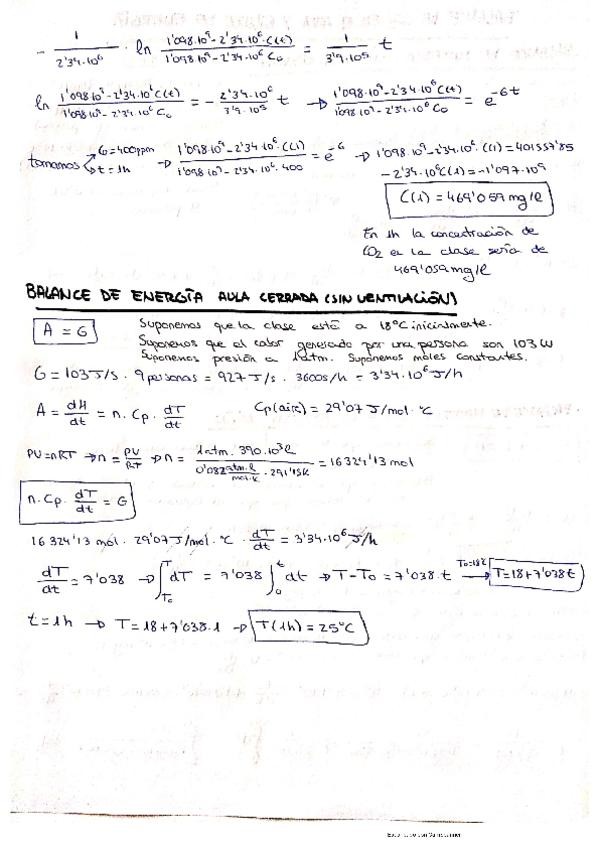 - 1/2'34·10⁶ · ln (1'098·10⁹-2'34·10⁶·C(t))/(1'098·10⁹-2'34·10⁶ C₀) = 1/3'9·10⁵ t
ln (1'098·10⁹-2'34·10⁶C(t))/(1'098·10⁹-2'34·10⁶C₀) = - 2'34·10⁶/3'9·10⁵ t → (1'098·10⁹-2'34·10⁶C(t))/(1'098·10⁹-2'34·10⁶C₀) = e^(-6t)
tomamos C₀=400ppm t=1h → (1'098·10⁹-2'34·10⁶·C(1))/(1'098·10⁹-2'34·10⁶·400) = e⁻⁶ → 1'098·10⁹-2'34·10⁶·C(1) = 401557'85
-2'34·10⁶C(1) = -1'097·10⁹
C(1) = 469'059 mg/l
En 1h la concentración de
CO₂ en la clase sería de
469'059 mg/l
BALANCE DE ENERGÍA AULA CERRADA (SIN VENTILACIÓN)
A = G
Suponemos que la clase está a 18°C inicialmente.
Suponemos que el calor generado por una persona son 103 W
Suponemos presión a 1atm. Suponemos moles constantes.
G = 103 J/s · 9 personas = 927 J/s · 3600s/h = 3'34·10⁶ J/h
A = dH/dt = n·Cp·dT/dt Cp(aire) = 29'07 J/mol·°C
PV=nRT → n = PV/RT → n = (1atm·390·10³l)/(0'082 atm·l/mol·K · 291'15K) = 16324'13 mol
n·Cp·dT/dt = G
16324'13 mol · 29'07 J/mol·°C · dT/dt = 3'34·10⁶ J/h
dT/dt = 7'038 → ∫_T₀^T dT = 7'038 ∫_0^t dt → T-T₀ = 7'038·t T₀=18°C → T=18+7'038t
t=1h → T=18+7'038·1 → T(1h) = 25°C